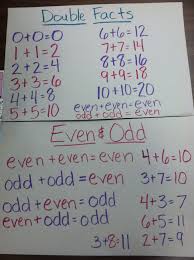 Double Facts
0+0=0
1+1=2
2+2=4
3+3=6
4+4=8
5+5=10
6+6=12
7+7=14
8+8=16
9+9=18
10+10=20
even+even=even
odd+odd=even
Even & Odd
even+even=even
odd+odd=even
odd+even=odd
even+odd=odd
4+6=10
3+7=10
4+5=9
6+5=11
2+7=9
3+8=11